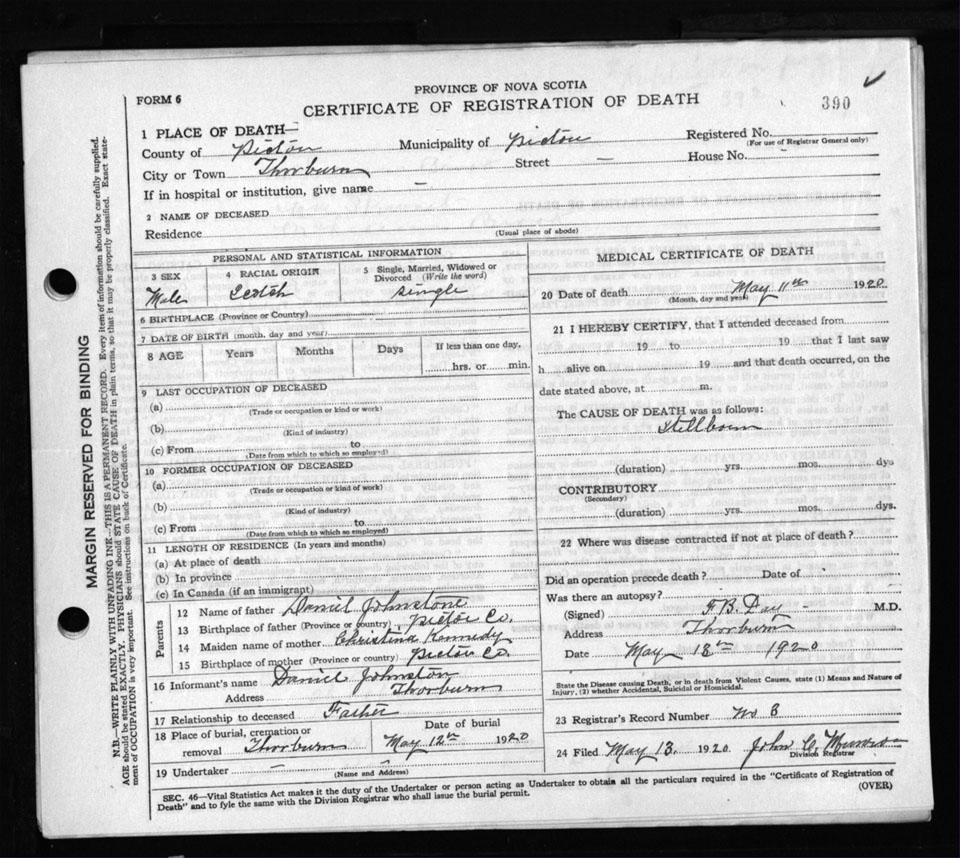 PROVINCE OF NOVA SCOTIA
FORM 6
CERTIFICATE OF REGISTRATION OF DEATH
390
1 PLACE OF DEATH—
County of Pictou Municipality of Pictou Registered No.
(For use of Registrar General only)
City or Town Thorburn Street — House No. -
If in hospital or institution, give name —
2 NAME OF DECEASED
Residence
(Usual place of abode)
PERSONAL AND STATISTICAL INFORMATION
3 SEX
Male
4 RACIAL ORIGIN
Scotch
5 Single, Married, Widowed or Divorced (Write the word)
single
6 BIRTHPLACE (Province or Country)
7 DATE OF BIRTH (month, day and year)
8 AGE Years Months Days If less than one day,
hrs. or min.
9 LAST OCCUPATION OF DECEASED
(a)
(Trade or occupation or kind or work)
(b)
(Kind of industry)
(c) From to
(Date from which to which so employed)
10 FORMER OCCUPATION OF DECEASED
(a)
(Trade or occupation or kind of work)
(b)
(Kind of industry)
(c) From to
(Date from which to which so employed)
11 LENGTH OF RESIDENCE (In years and months)
(a) At place of death
(b) In province
(c) In Canada (if an immigrant)
Parents
12 Name of father Daniel Johnstone
13 Birthplace of father (Province or country) Pictou Co.
14 Maiden name of mother Christina Kennedy
15 Birthplace of mother (Province or country) Pictou Co.
16 Informant's name Daniel Johnston
Address Thorburn
17 Relationship to deceased Father
18 Place of burial, cremation or removal Thorburn
Date of burial
May 12th 1920
19 Undertaker —
(Name and Address)
MEDICAL CERTIFICATE OF DEATH
20 Date of death May 11th 1920.
(Month, day and year)
21 I HEREBY CERTIFY, that I attended deceased from
19 to 19 that I last saw
h alive on 19 and that death occurred, on the
date stated above, at m.
The CAUSE OF DEATH was as follows:
Stillborn
(duration) yrs. mos. dys
CONTRIBUTORY
(Secondary)
(duration) yrs. mos. dys.
22 Where was disease contracted if not at place of death?
Did an operation precede death? Date of
Was there an autopsy?
(Signed) F. B. Day M.D.
Address Thorburn
Date May 13th 1920
State the Disease causing Death, or in death from Violent Causes, state (1) Means and Nature of
Injury, (2) whether Accidental, Suicidal or Homicidal.
23 Registrar's Record Number No 8
24 Filed May 13. 1920. John C.
Division Registrar
SEC. 46—Vital Statistics Act makes it the duty of the Undertaker or person acting as Undertaker to obtain all the particulars required in the "Certificate of Registration of
Death" and to fyle the same with the Division Registrar who shall issue the burial permit.
(OVER)
MARGIN RESERVED FOR BINDING
N.B.—WRITE PLAINLY WITH UNFADING INK—THIS IS A PERMANENT RECORD. Every item of information should be carefully supplied.
AGE should be stated EXACTLY. PHYSICIANS should STATE CAUSE OF DEATH in plain terms, so that it may be properly classified. Exact state-
ment of OCCUPATION is very important. See instructions on back of Certificate.